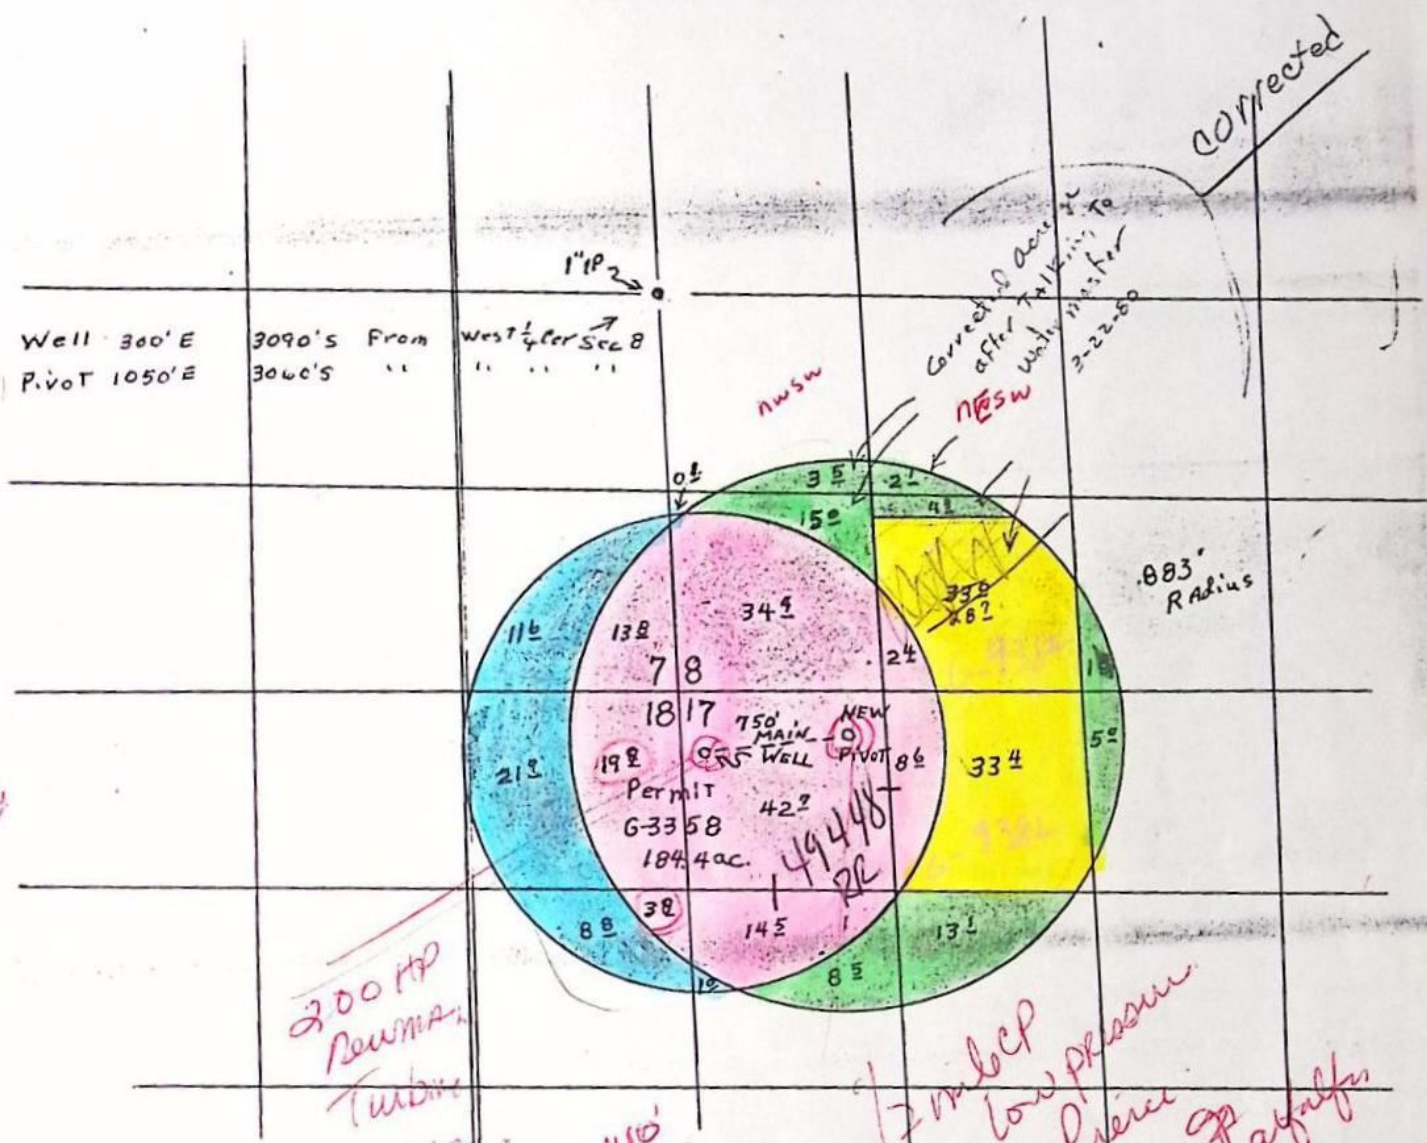 corrected
Corrected acreage
after Talking To
water master
3-22-80
1"IP
Well 300'E 3090'S From West ¼ Cor Sec 8
Pivot 1050'E 3060'S " " " "
nwsw
nESW
0.1
3.5
2.1
4.2
15.0
.883"
RAdius
33.0
28.7
11.6
13.8
34.9
2.4
7 8
18 17
750'
MAIN
WELL
NEW
PivoT
21.9
19.8
8.6
33.4
5.0
Permit
G-3358
184.4 ac.
42.7
49448
RR
8.8
3.8
14.5
13.1
1.0
8.5
200 HP
Turbine
1/2 mile CP
low pressure
Pierce
alfalfa